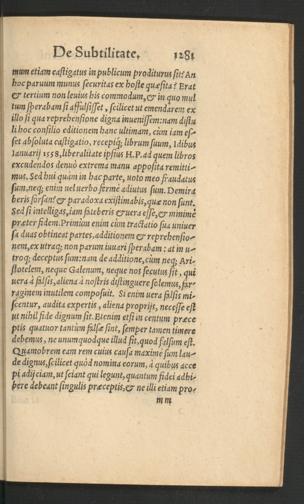 De Subtilitate. 1281
mum etiam castigatus in publicum proditurus sit? An
hoc paruum munus securitas ex hoste quæsita? Erat
& tertium non leuius his commodum, & in quo mul
tum sperabam si affulsisset, scilicet ut emendarem ex
illo si qua reprehensione digna inuenissem: nam dictu
li hoc consilio editionem hanc ultimam, cùm iam es-
set absoluta castigatio. recepiq́; librum suum, Idibus
Ianuarij 1558, liberalitate ipsius H.P. ad quem libros
excudendos denuò extrema manu apposita remitti-
mus. Sed hui quàm in hac parte, uoto meo fraudatus
sum, neq; enim uel uerbo fermè adiutus sum. Demira
beris forsan & paradoxa existimabis, quæ non sunt.
Sed si intelligas, iam fateberis & uera esse, & minimè
præter fidem. Primùm enim cùm tractatio sua uniuer
sa duas obtineat partes, additionem & reprehensio-
nem, ex utraq; non parum iuuari sperabam: at in u-
troq; deceptus sum: nam de additione, cùm neq; Ari-
stotelem, neque Galenum, neque nos secutus sit, qui
uera à falsis, aliena à nostris distinguere solemus, far-
raginem inutilem composuit. Si enim uera falsis mi-
scentur, audita expertis, aliena proprijs, necesse est
ut nihil fide dignum sit. Etenim etsi in centum præce
ptis quatuor tantùm falsa sint, semper tamen timere
debemus, ne unumquodque illud sit, quod falsum est.
Quamobrem eam rem cuius causa maximè sum lau-
de dignus, scilicet quòd nomina eorum, à quibus acce
pi adijciam, ut sciant qui legunt, quantum fidei adhi-
bere debeant singulis præceptis, & ne illi etiam pro-
mm